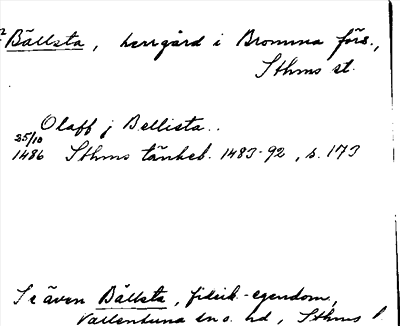 Bällsta, herrgård i Bromma förs.,
Sthms st.
Olaff j Bellista..
25/10
1486 Sthms tänkeb. 1483-92, s. 173
Se även Bällsta, fideik-egendom,
Vallentuna sn o. hd, Sthms l.